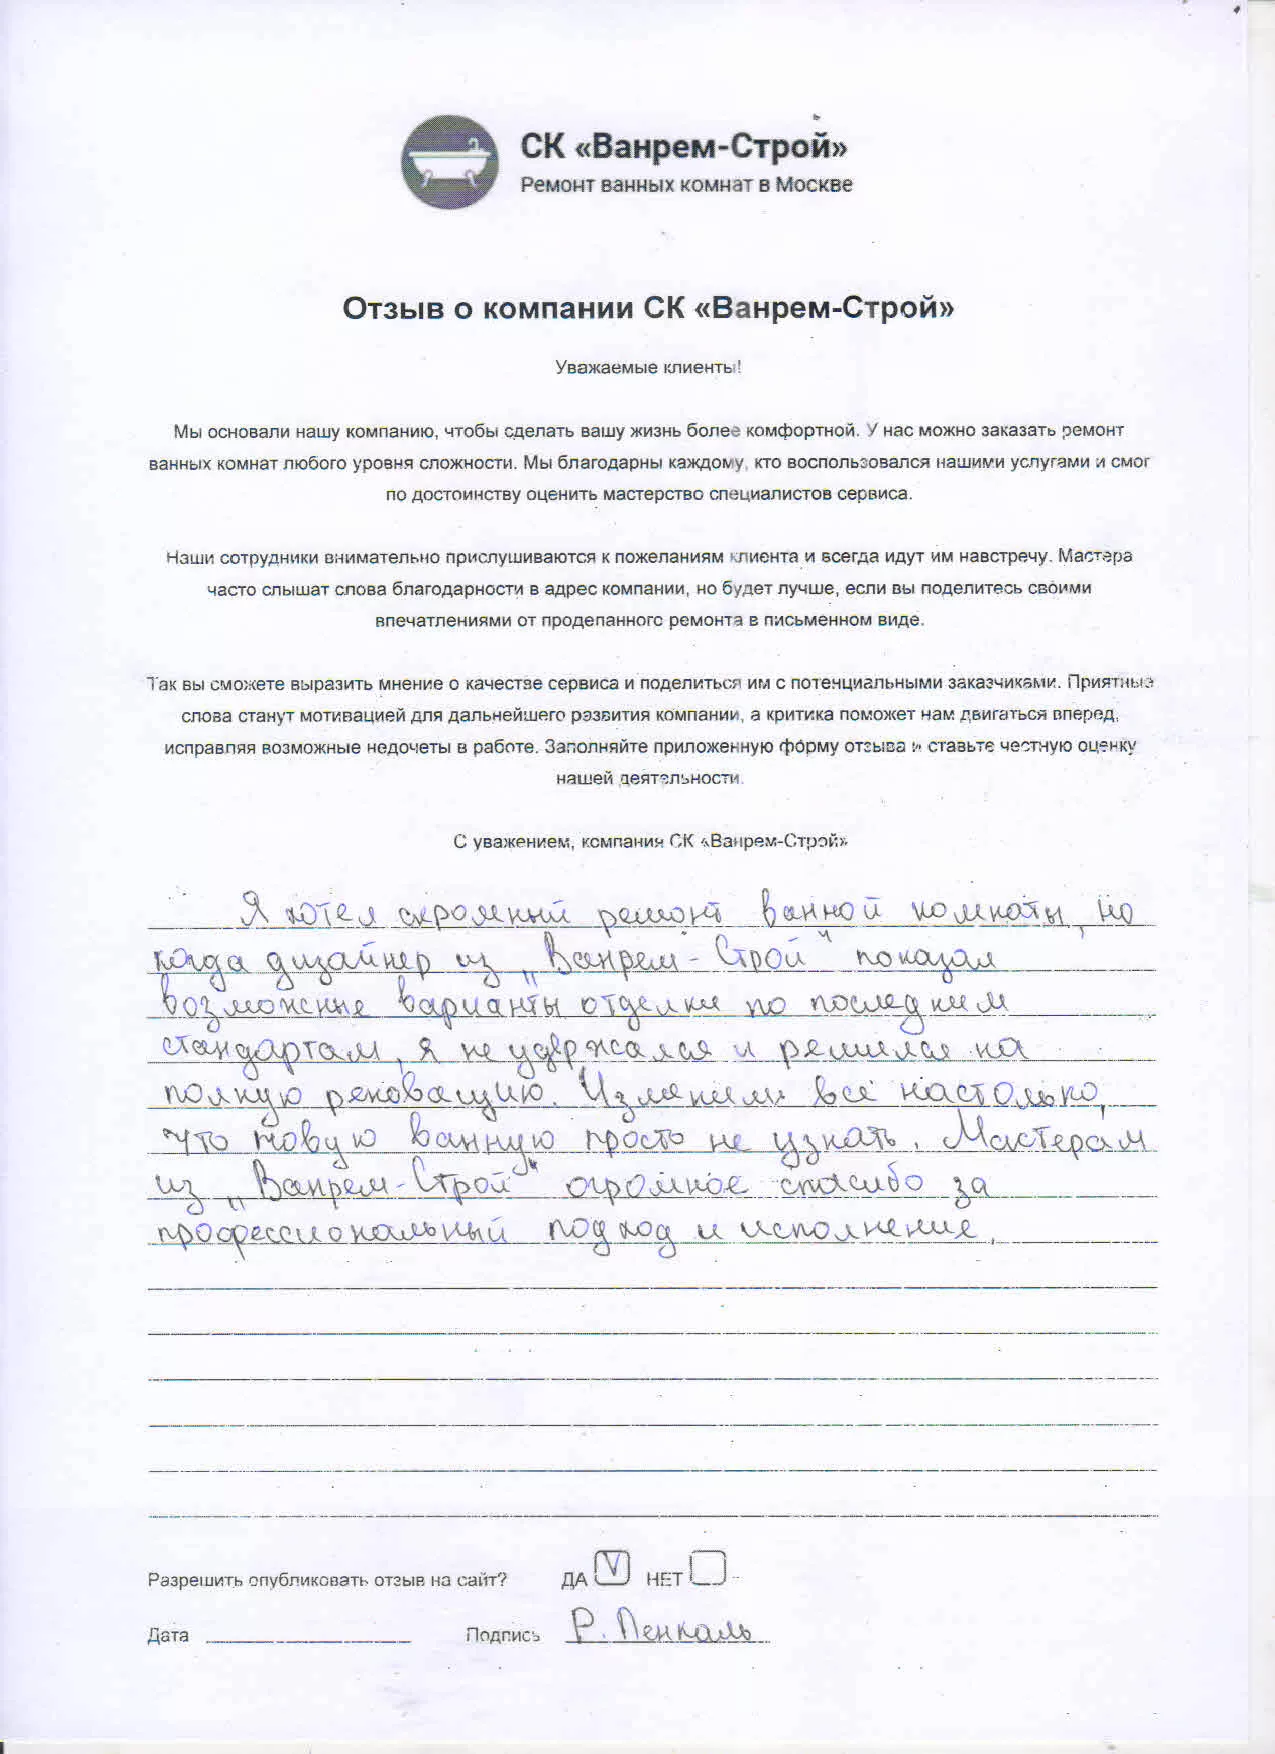 СК «Ванрем-Строй»
Ремонт ванных комнат в Москве
Отзыв о компании СК «Ванрем-Строй»
Уважаемые клиенты!
Мы основали нашу компанию, чтобы сделать вашу жизнь более комфортной. У нас можно заказать ремонт
ванных комнат любого уровня сложности. Мы благодарны каждому, кто воспользовался нашими услугами и смог
по достоинству оценить мастерство специалистов сервиса.
Наши сотрудники внимательно прислушиваются к пожеланиям клиента и всегда идут им навстречу. Мастера
часто слышат слова благодарности в адрес компании, но будет лучше, если вы поделитесь своими
впечатлениями от проделанного ремонта в письменном виде.
Так вы сможете выразить мнение о качестве сервиса и поделиться им с потенциальными заказчиками. Приятные
слова станут мотивацией для дальнейшего развития компании, а критика поможет нам двигаться вперед,
исправляя возможные недочеты в работе. Заполняйте приложенную форму отзыва и ставьте честную оценку
нашей деятельности.
С уважением, компания СК «Ванрем-Строй»
Я хотел скромный ремонт ванной комнаты, но
когда дизайнер из „Ванрем-Строй“ показал
возможные варианты отделки по последним
стандартам, я не удержался и решился на
полную реновацию. Изменили всё настолько,
что новую ванную просто не узнать. Мастерам
из „Ванрем-Строй“ огромное спасибо за
профессиональный подход и исполнение.
Разрешить опубликовать отзыв на сайт? ДА V НЕТ
Дата Подпись Р. Пенкаль